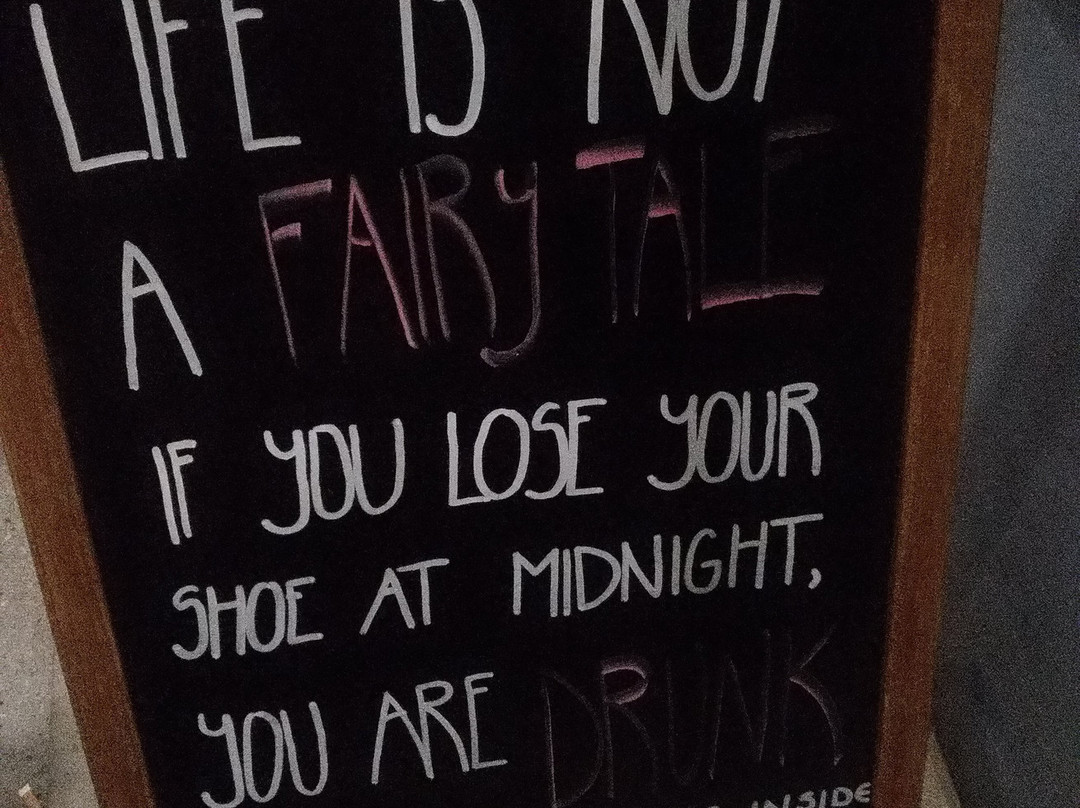 LIFE IS NOT
A FAIRY TALE
IF YOU LOSE YOUR
SHOE AT MIDNIGHT,
YOU ARE DRUNK
INSIDE